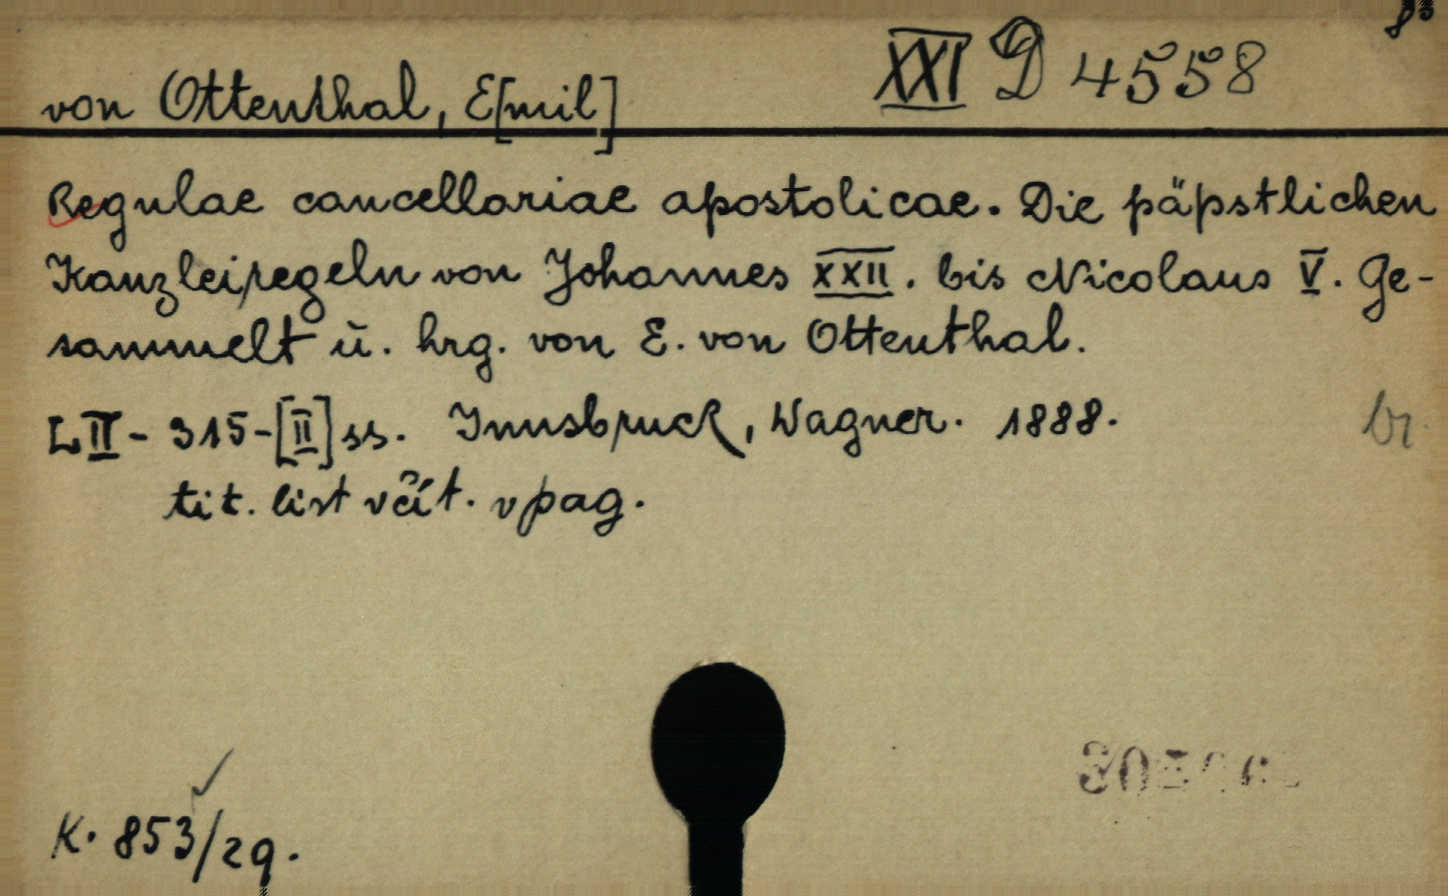 8°
XXI D 4558
von Ottenthal, E[mil]
Regulae cancellariae apostolicae. Die päpstlichen
Kanzleiregeln von Johannes XXII. bis Nicolaus V. Ge-
sammelt u. hrg. von E. von Ottenthal.
LII - 315 - [II] ss. Innsbruck, Wagner. 1888.
br.
tit. list včít. v pag.
K. 853/29.